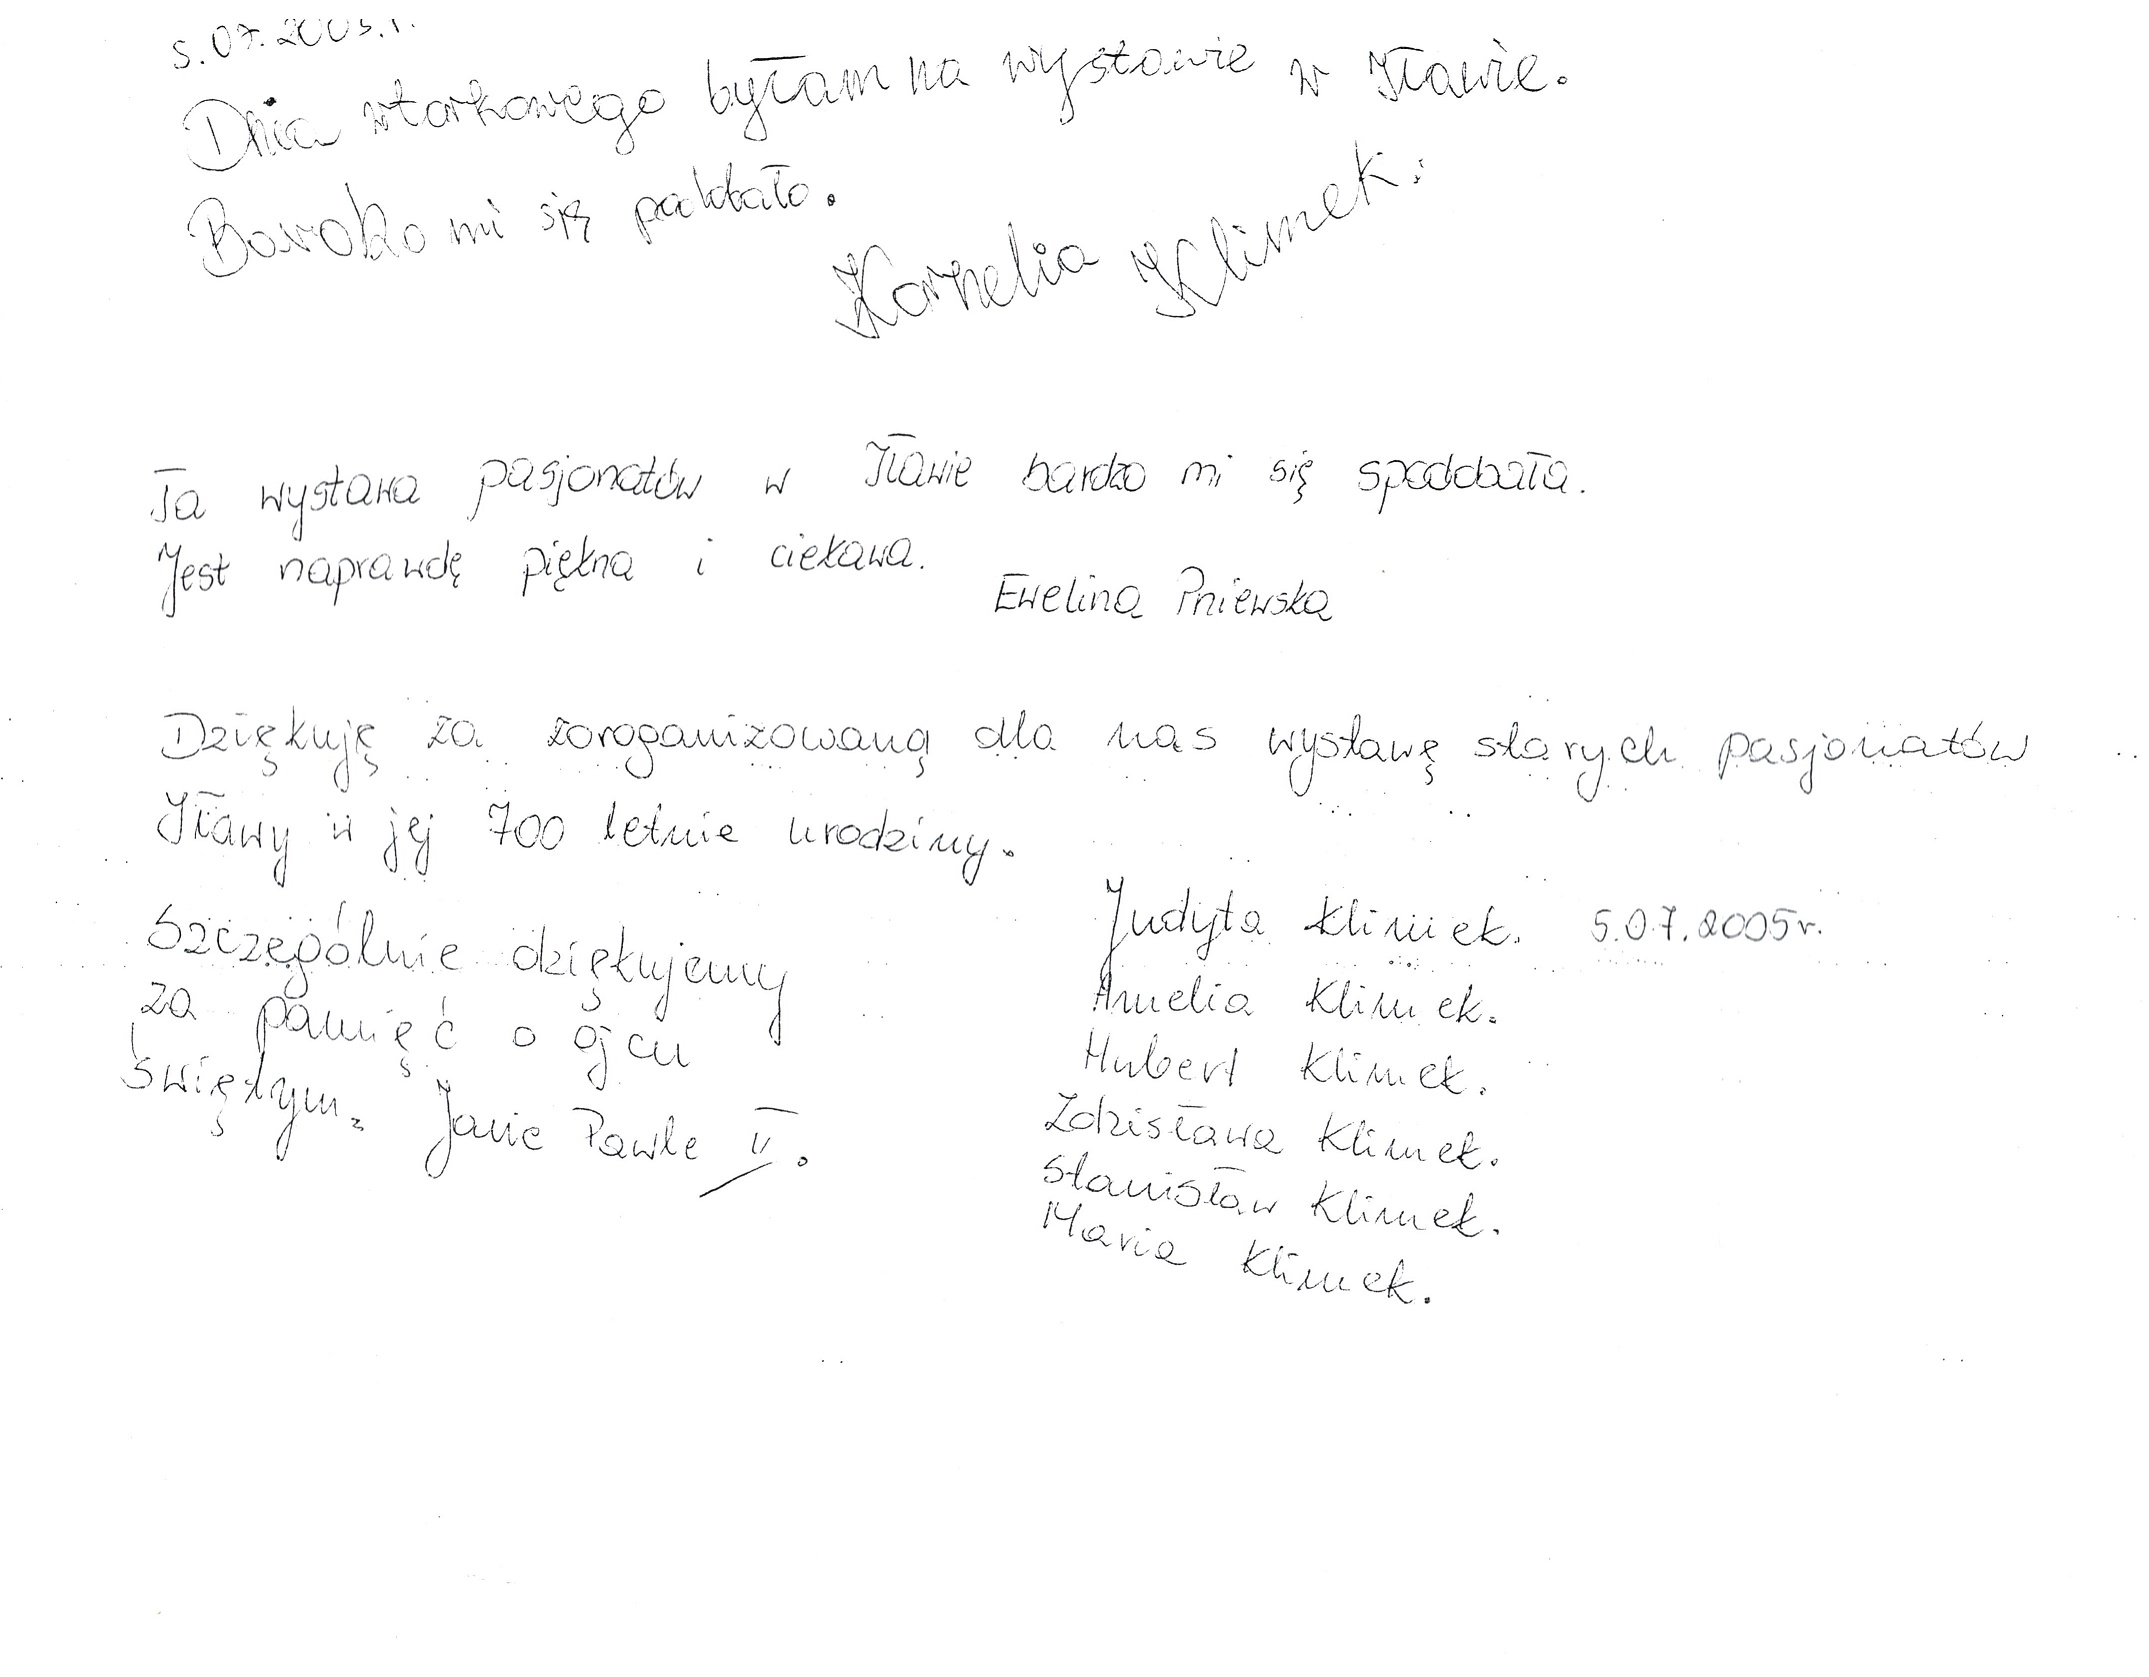 5.07.2005.r.
Dnia wtorkowego byłam na wystawie w Iławie.
Bardzo mi się podobało.
Kornelia Klimek.
Ta wystawa pasjonatów w Iławie bardzo mi się spodobała.
Jest naprawdę piękna i ciekawa.
Ewelina Pniewska
Dziękuję za zoroganizowaną dla nas wystawę starych pasjonatów
Iławy w jej 700 letnie urodziny.
Judyta Klimek. 5.07.2005r.
Amelia Klimek.
Hubert Klimek.
Zdzisława Klimek.
Stanisław Klimek.
Maria Klimek.
Szczególnie dziękujemy
za pamięć o ojcu
świętym. Janie Pawle II.